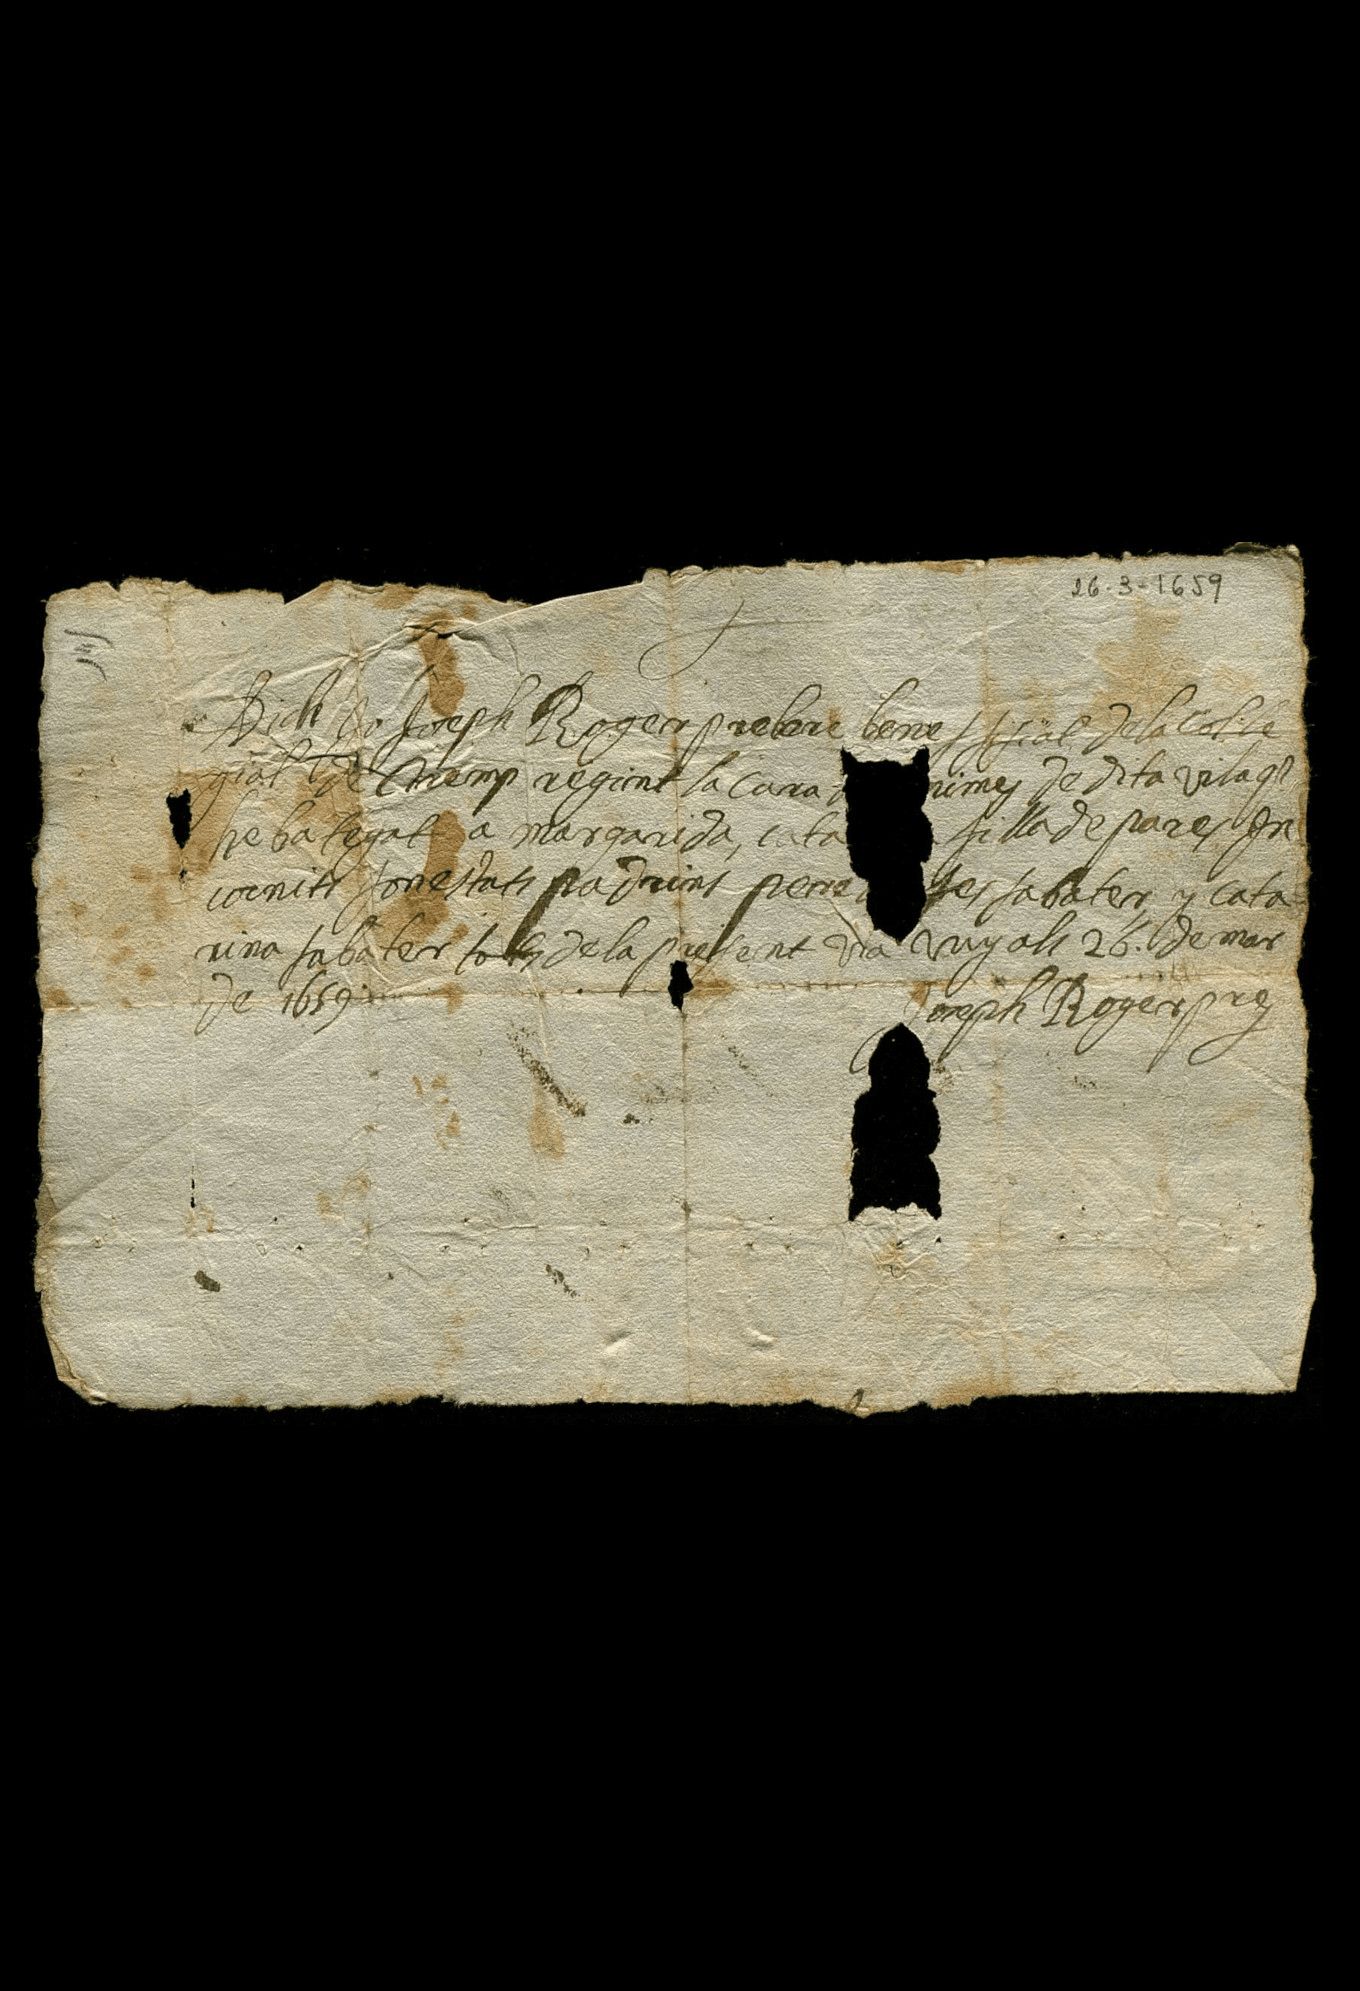 26-3-1659
Dich Jo Joseph Roger prebere benefisial de la Colle
gial de Tremp regint la cura de dita vila q
he bategat a margarida, cata filla de pares In
cognits fonestats padrins pere sabater y cata
rina sabater tots de la present via vuy als 26. de mar
de 1659
Joseph Roger pre